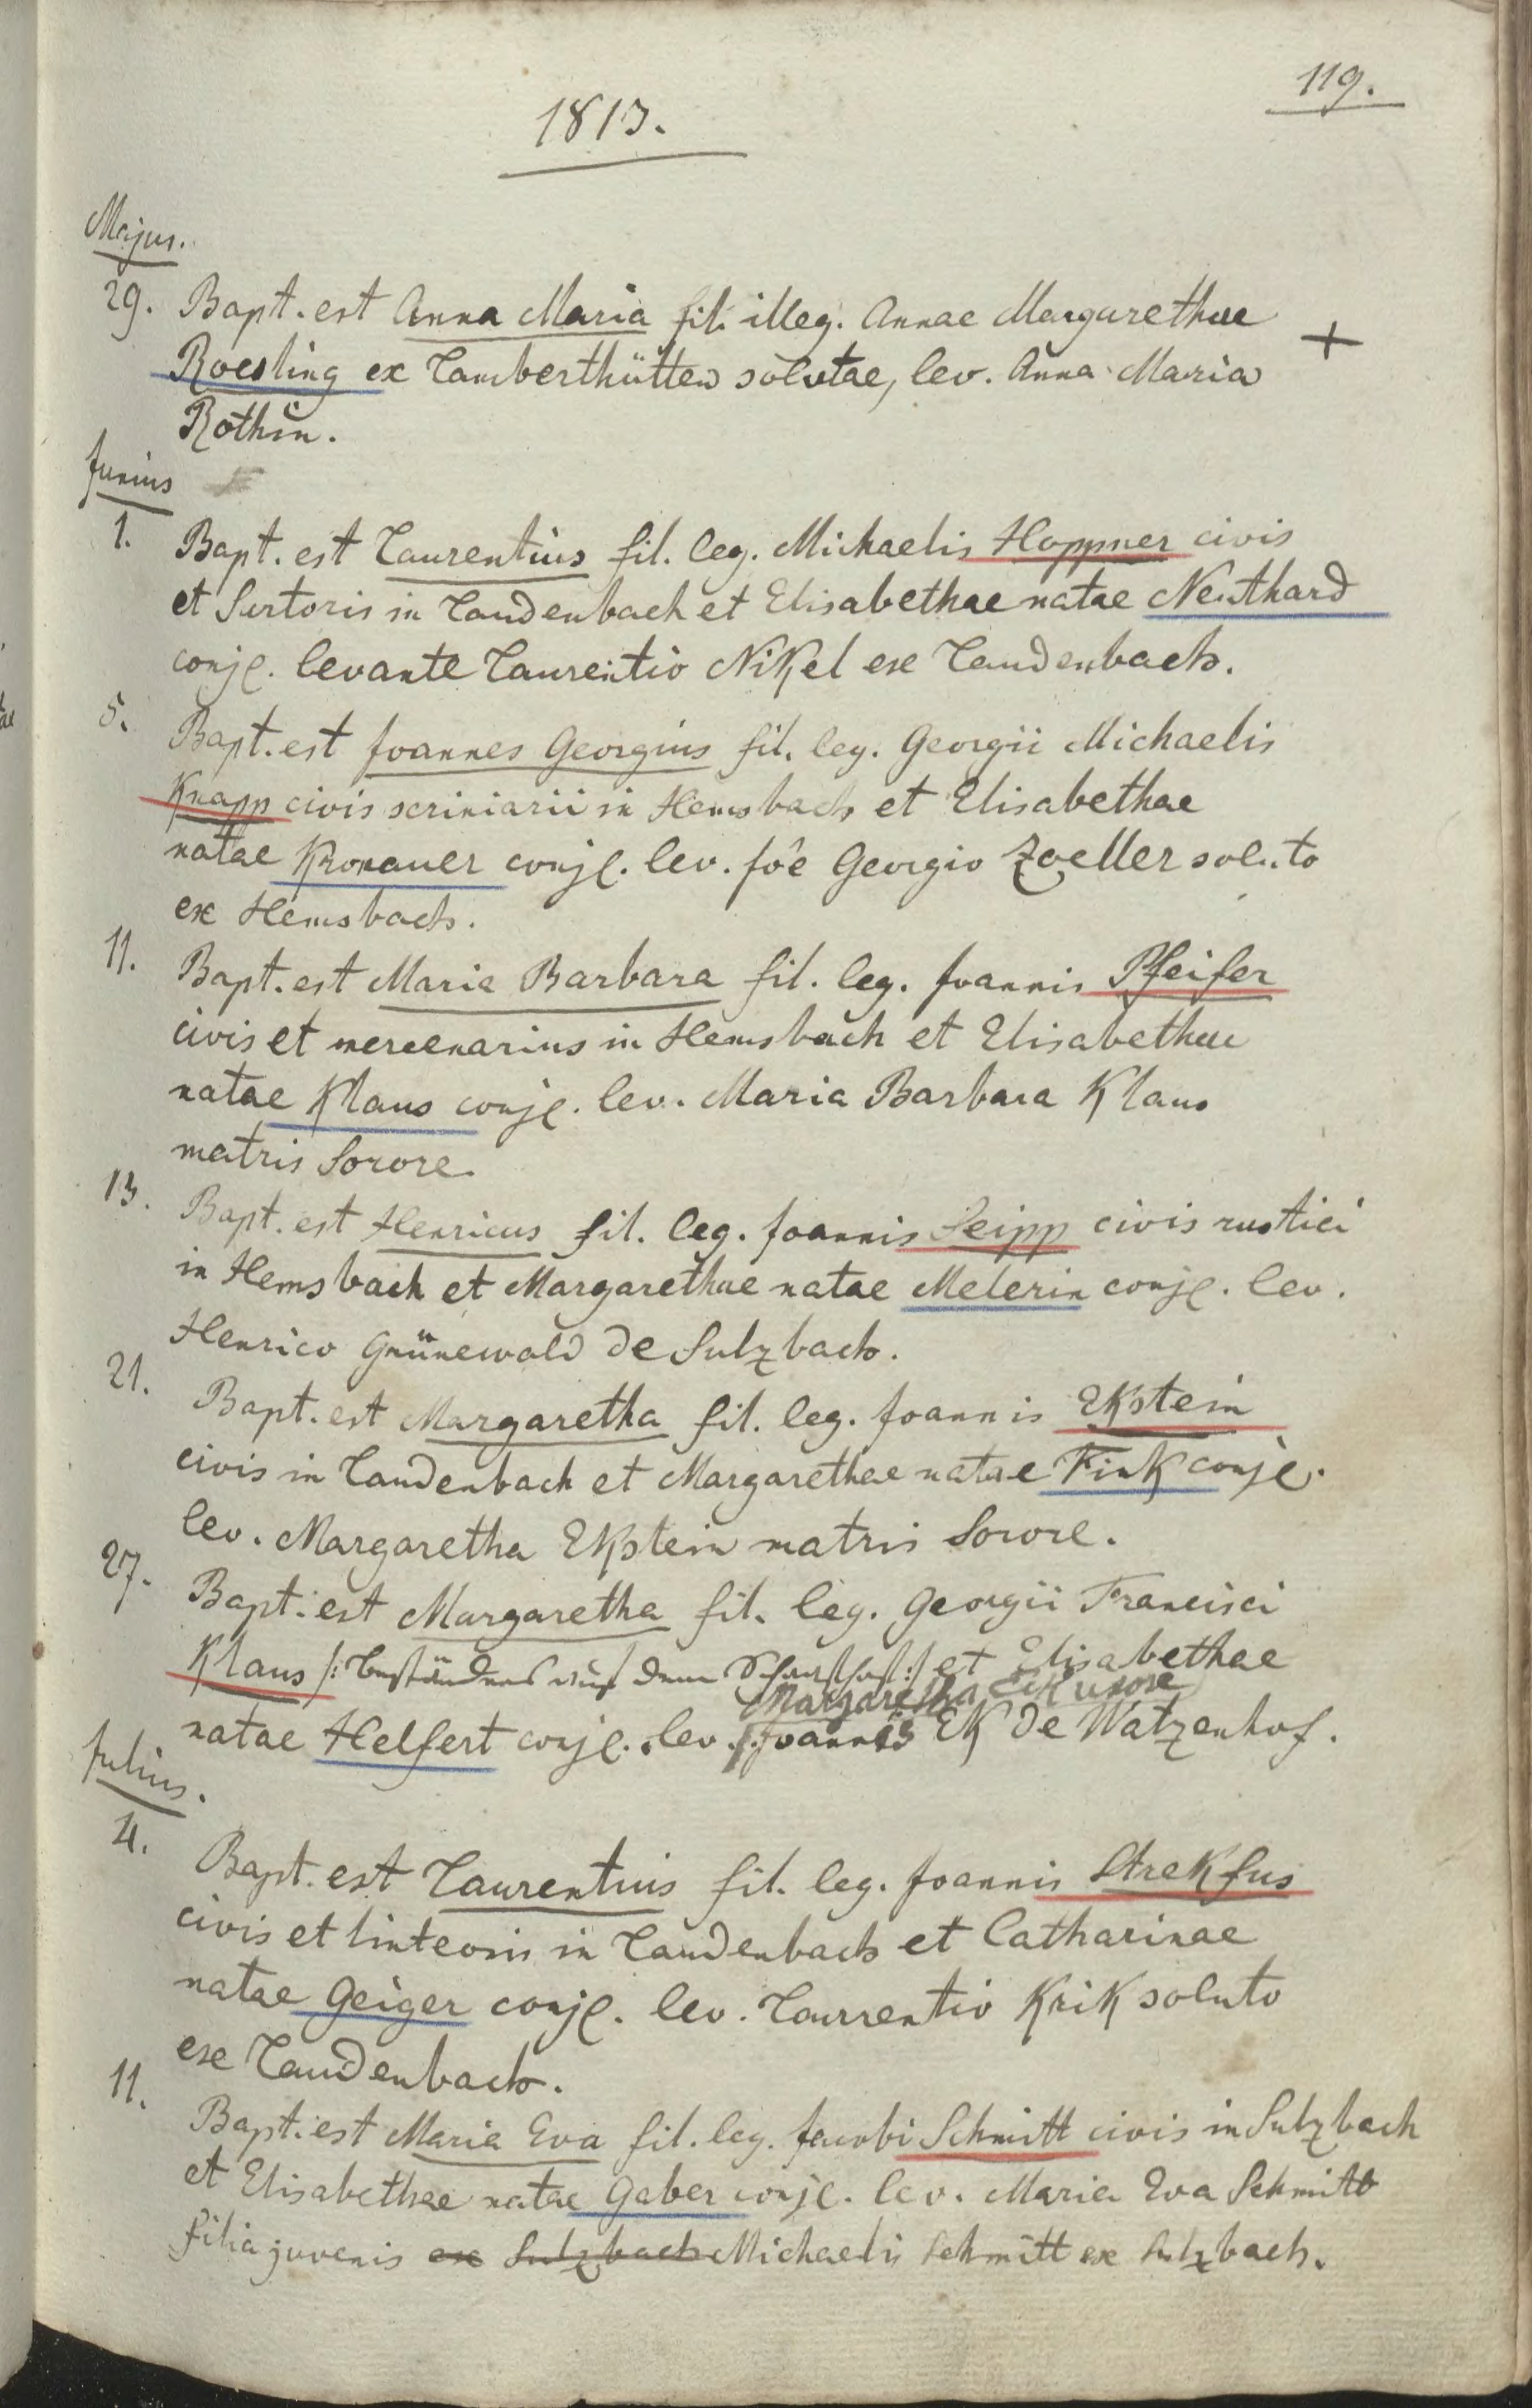 119.
1813.
Majus.
29. Bapt. est Anna Maria fil. illeg. Annae Margarethae
Roesling ex Lamberthütten solutae, lev. Anna Maria +
Rothin.
Junius
1. Bapt. est Laurentius fil. leg. Michaelis Hoppner civis
et Sartoris in Laudenbach et Elisabethae natae Neuthard
conjl. levante Laurentio Nikel ex Laudenbach.
5. Bapt. est Joannes Georgius fil. leg. Georgii Michaelis
Knapp civis scriniarii in Hemsbach et Elisabethae
natae Kronauer conjl. lev. Jôe Georgio Zoeller soluto
ex Hemsbach.
11. Bapt. est Maria Barbara fil. leg. Joannis Pfeifer
civis et mercenarius in Hemsbach et Elisabethae
natae Klaus conjl. lev. Maria Barbara Klaus
matris Sorore.
13. Bapt. est Henricus fil. leg. Joannis Seipp civis rustici
in Hemsbach et Margarethae natae Melerin conjl. lev.
Henrico Grünewald de Sulzbach.
21. Bapt. est Margaretha fil. leg. Joannis Ekstein
civis in Laudenbach et Margarethae natae Fink conjl.
lev. Margaretha Ekstein matris Sorore.
27. Bapt. est Margaretha fil. leg. Georgii Francisci
Klaus /: Beständner auf dem :/ et Elisabethae
Margaretha Eck uxore
natae Helfert conjl. lev. Joannis Ek de Watzenhof.
Julius.
4. Bapt. est Laurentius fil. leg. Joannis Strekfus
civis et linteonis in Laudenbach et Catharinae
natae Geiger conjl. lev. Laurentio Krik soluto
ex Laudenbach.
11. Bapt. est Maria Eva fil. leg. Jacobi Schmitt civis in Sulzbach
et Elisabethae natae Gaber conjl. lev. Maria Eva Schmitt
filia juvenis ex Sulzbach Michaelis Schmitt ex Sulzbach.